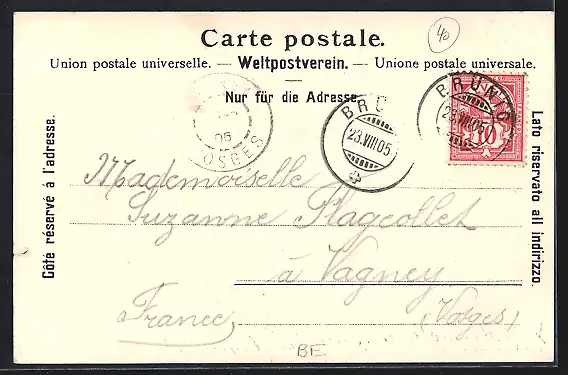 40
Carte postale.
Union postale universelle. — Weltpostverein. — Unione postale universale.
Nur für die Adresse.
Côté réservé à l'adresse.
Lato riservato all indirizzo.
05
OSGES
BRÜ
23.VIII.05
BRÜNIG
23.VIII.05
10
Mademoiselle
Suzanne Flageollet
à Vagney
France
(Vosges)
BE